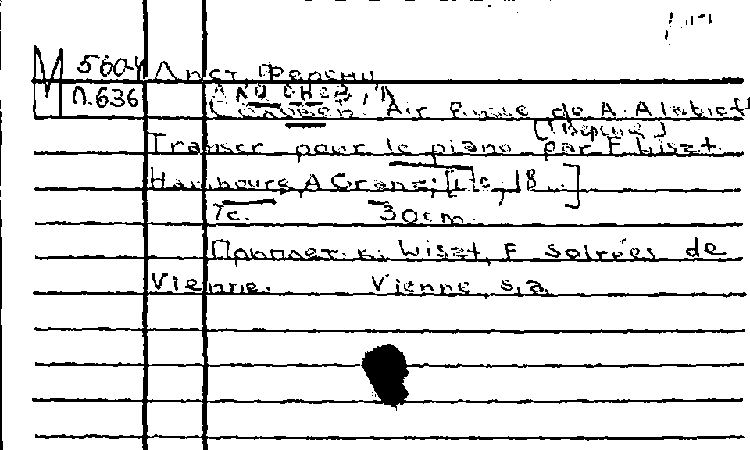 М 560-4 Лист, Ференц
Л.636 Air russe de A. Alabieff
[1 версия]
Transcr. pour le piano par F. Liszt
Hambourg, A. Cranz; [18..]
7с. 30cm.
Приплет. к: Liszt, F. Soirées de
Vienne. Vienne, s.a.